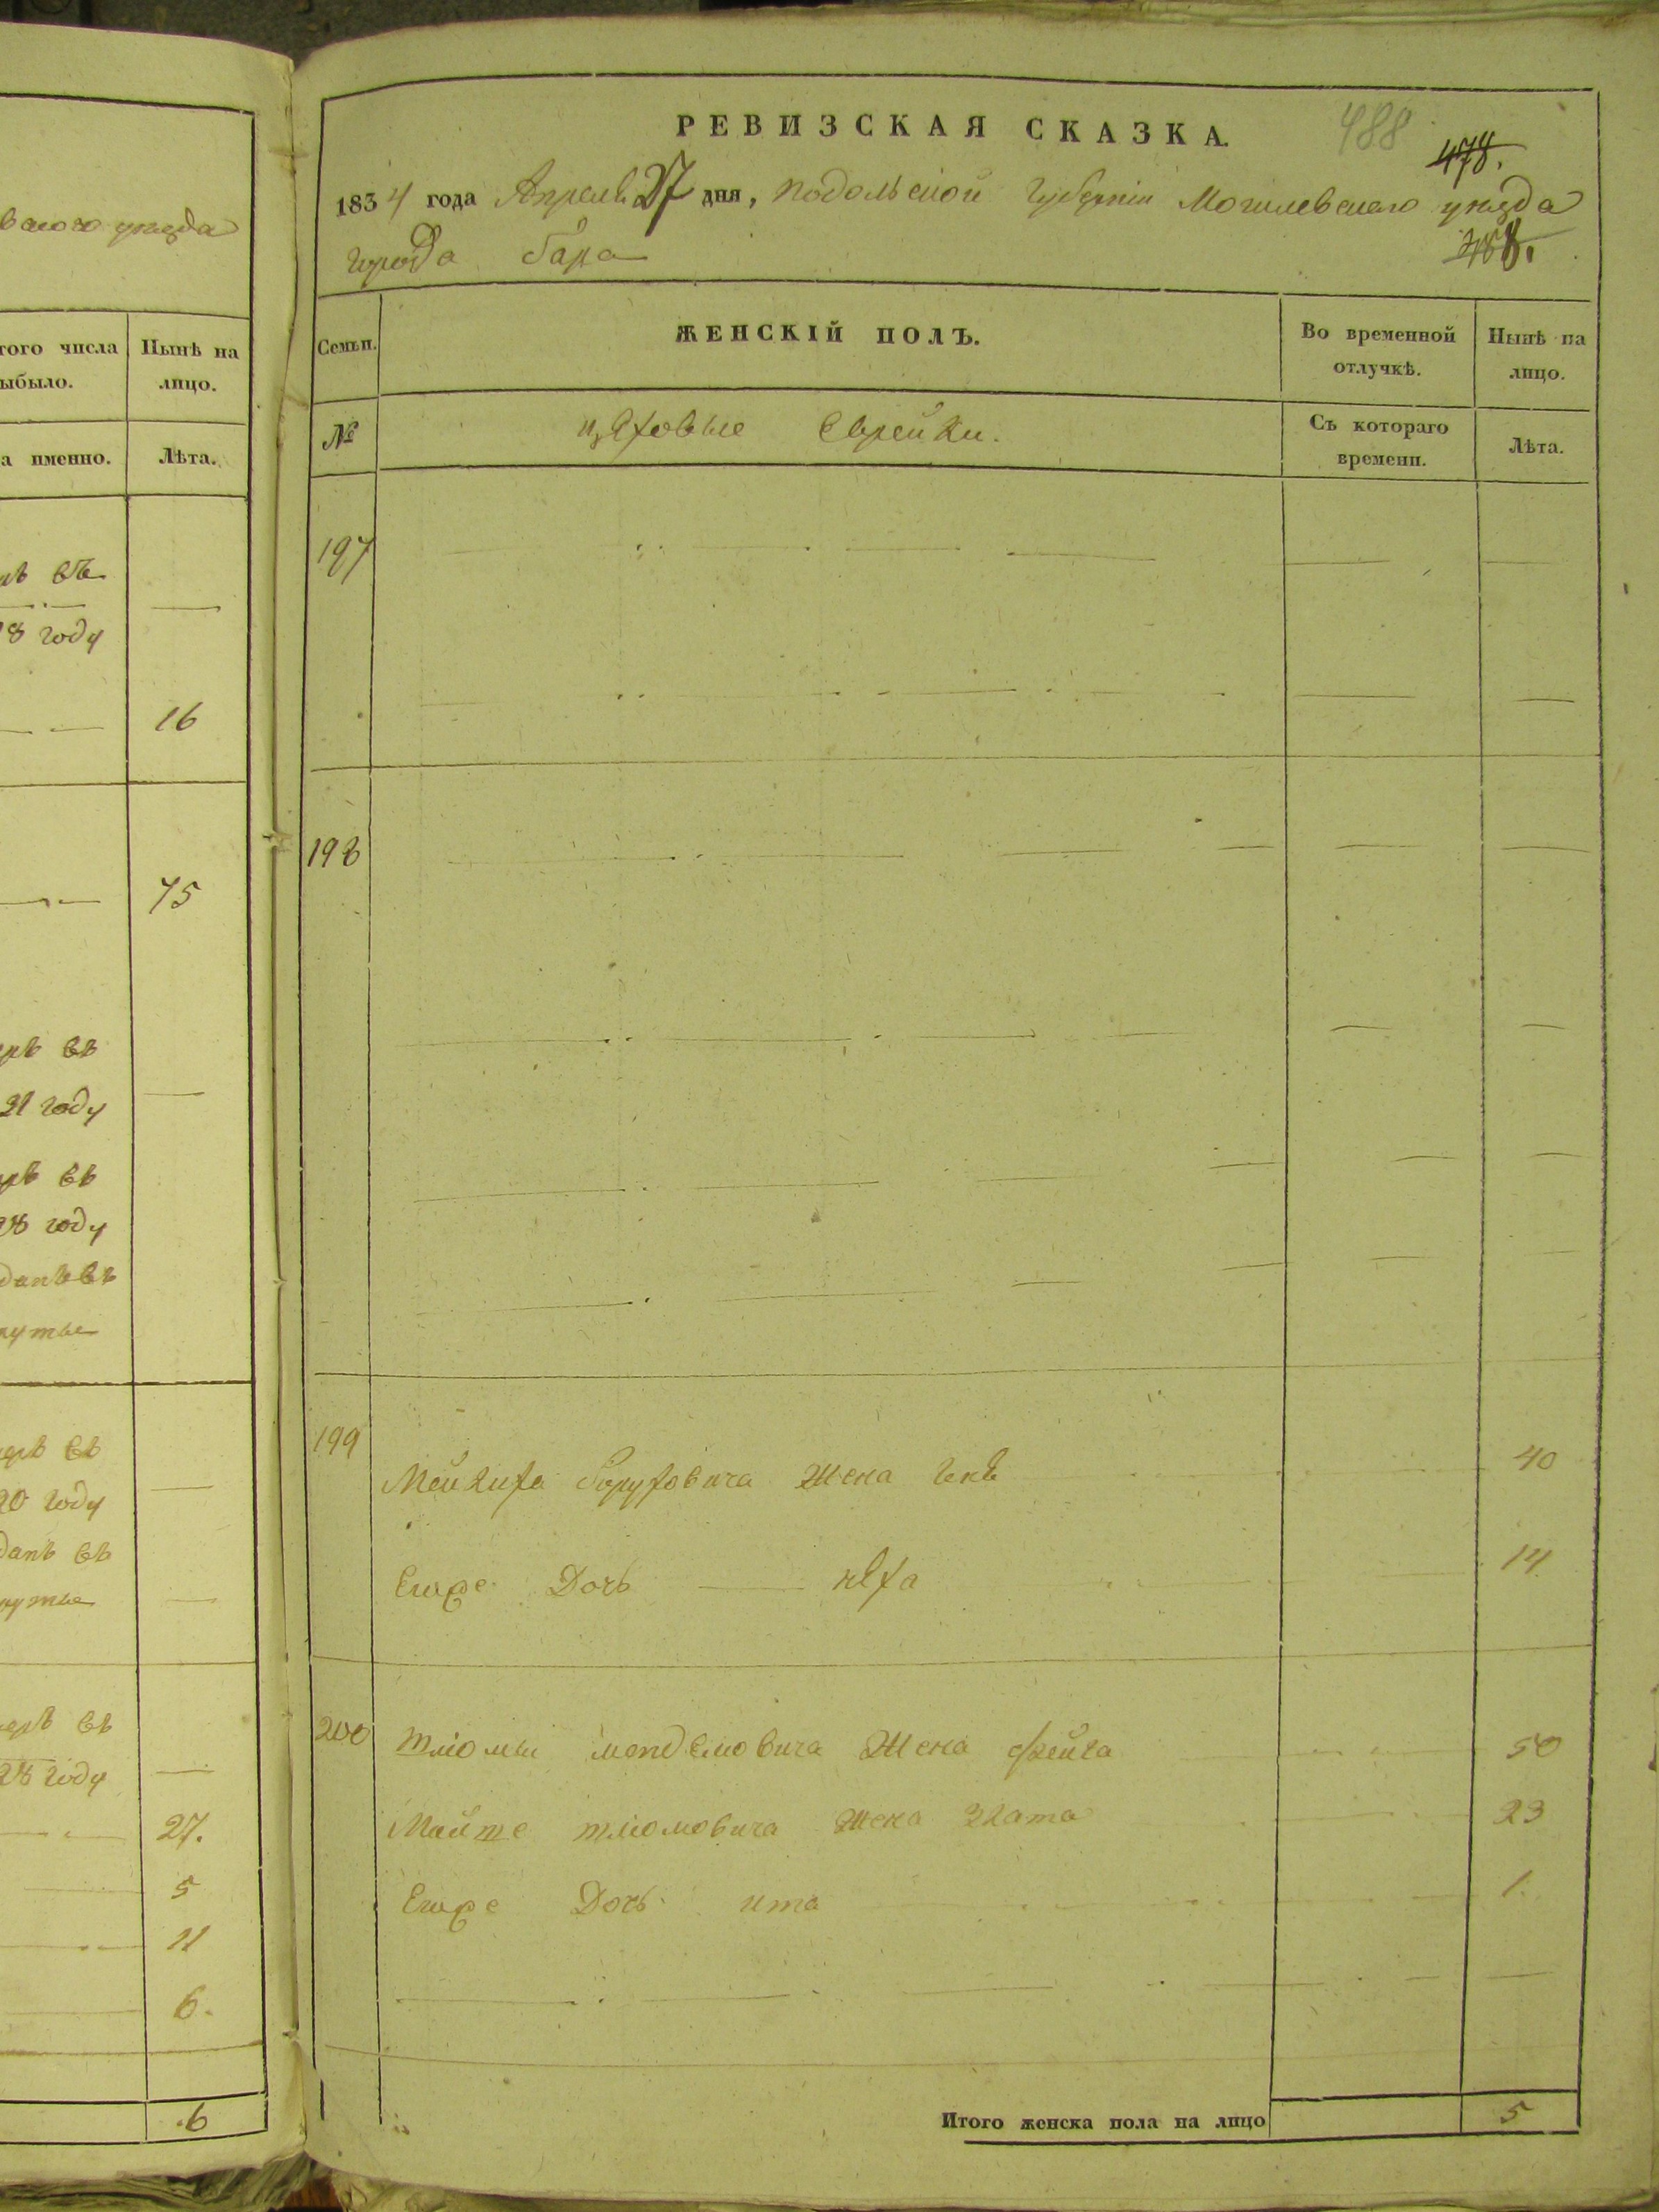 вского уезда
того числа
Нынѣ на
ыбыло.
лицо.
а именно.
Лѣта.
въ
18 году
16
75
въ
21 году
въ
28 году
въ
20 году
въ
въ
28 году
27.
5
11
6.
6
РЕВИЗСКАЯ СКАЗКА.
488
478.
1834 года Апреля 27 дня, Подольской Губерніи Могилевского уезда
города Бара
488.
Семьи.
ЖЕНСКІЙ ПОЛЪ.
Во временной отлучкѣ.
Нынѣ на лицо.
№
цѣховые Еврейки.
Съ котораго времени.
Лѣта.
197
198
199
Боруховича Жена 40
Егоже Дочь 14
200
Шліомы Менделіовича Жена Фейга 50
Шліомовича Жена Злата 23
Егоже Дочь Ита 1.
Итого женска пола на лицо
5